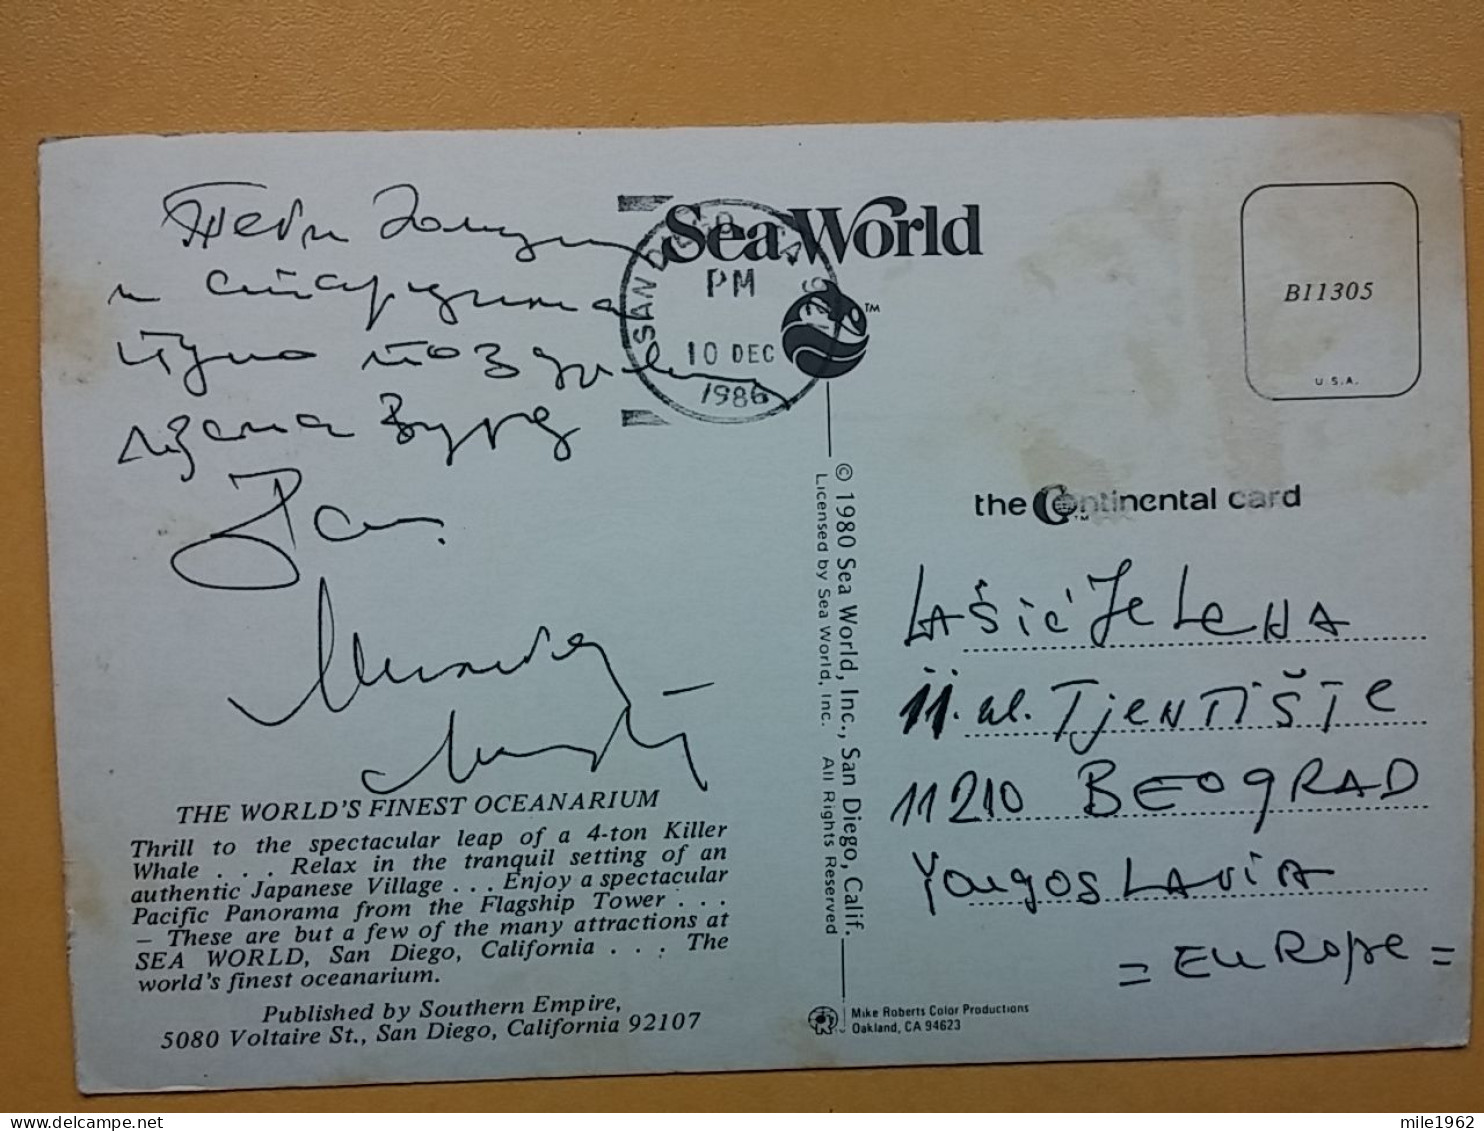 Теби
и
пуно поздрава
SeaWorld
TM
SAN DIEGO CA 921
PM
10 DEC
1986
B11305
U.S.A.
the Continental card
TM
© 1980 Sea World, Inc., San Diego, Calif.
Licensed by Sea World, Inc. All Rights Reserved
LAŠIĆ JELENA
11. ul. TJENTIŠTE
11210 BEOGRAD
YougosLAViA
= EuRope =
THE WORLD'S FINEST OCEANARIUM
Thrill to the spectacular leap of a 4-ton Killer
Whale . . . Relax in the tranquil setting of an
authentic Japanese Village . . . Enjoy a spectacular
Pacific Panorama from the Flagship Tower . . .
– These are but a few of the many attractions at
SEA WORLD, San Diego, California . . . The
world's finest oceanarium.
Published by Southern Empire,
5080 Voltaire St., San Diego, California 92107
Mike Roberts Color Productions
Oakland, CA 94623
mile1962